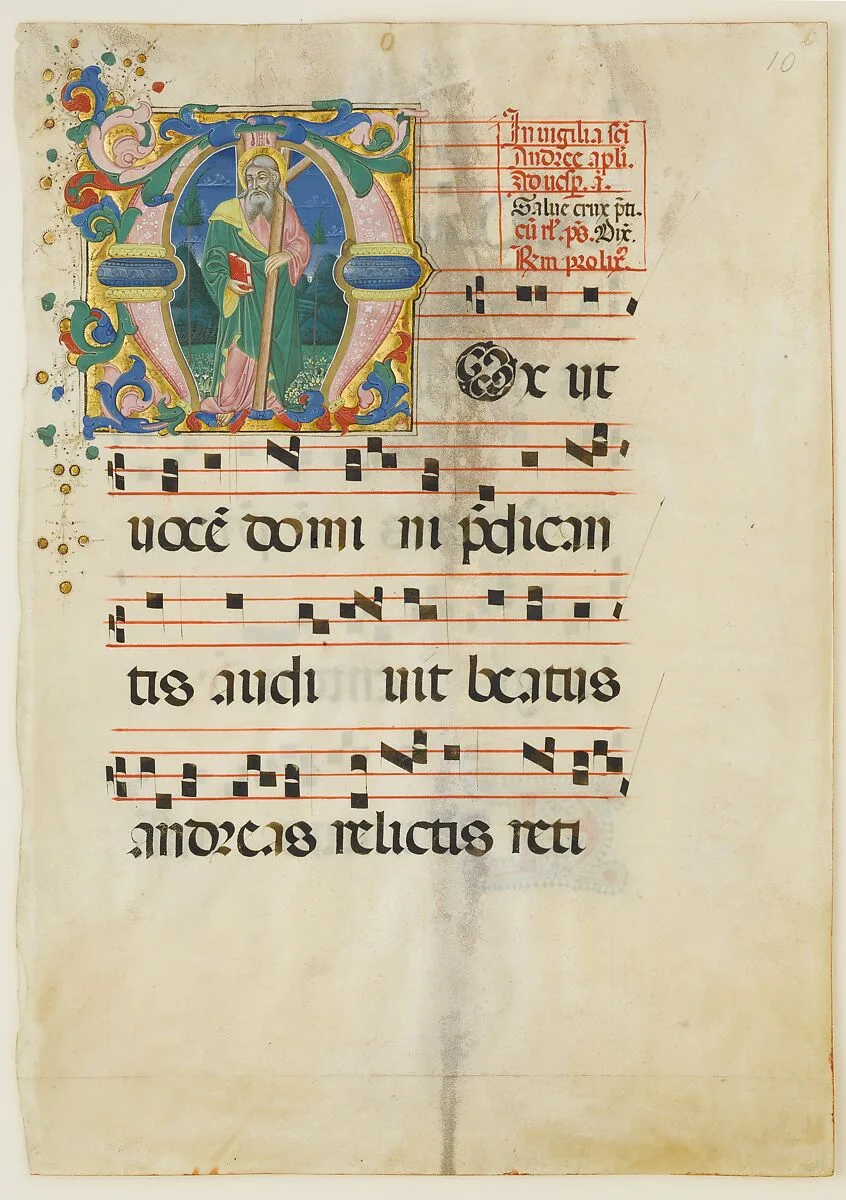 10
In uigilia sci
Andree apli.
Ad uesp. a.
Salue crux p̄ti.
cū rl'. ps. Dix.
Rm prolix.
Mox ut
uocē domi ni p̄dican
tis audi uit beatus
andreas relictis reti